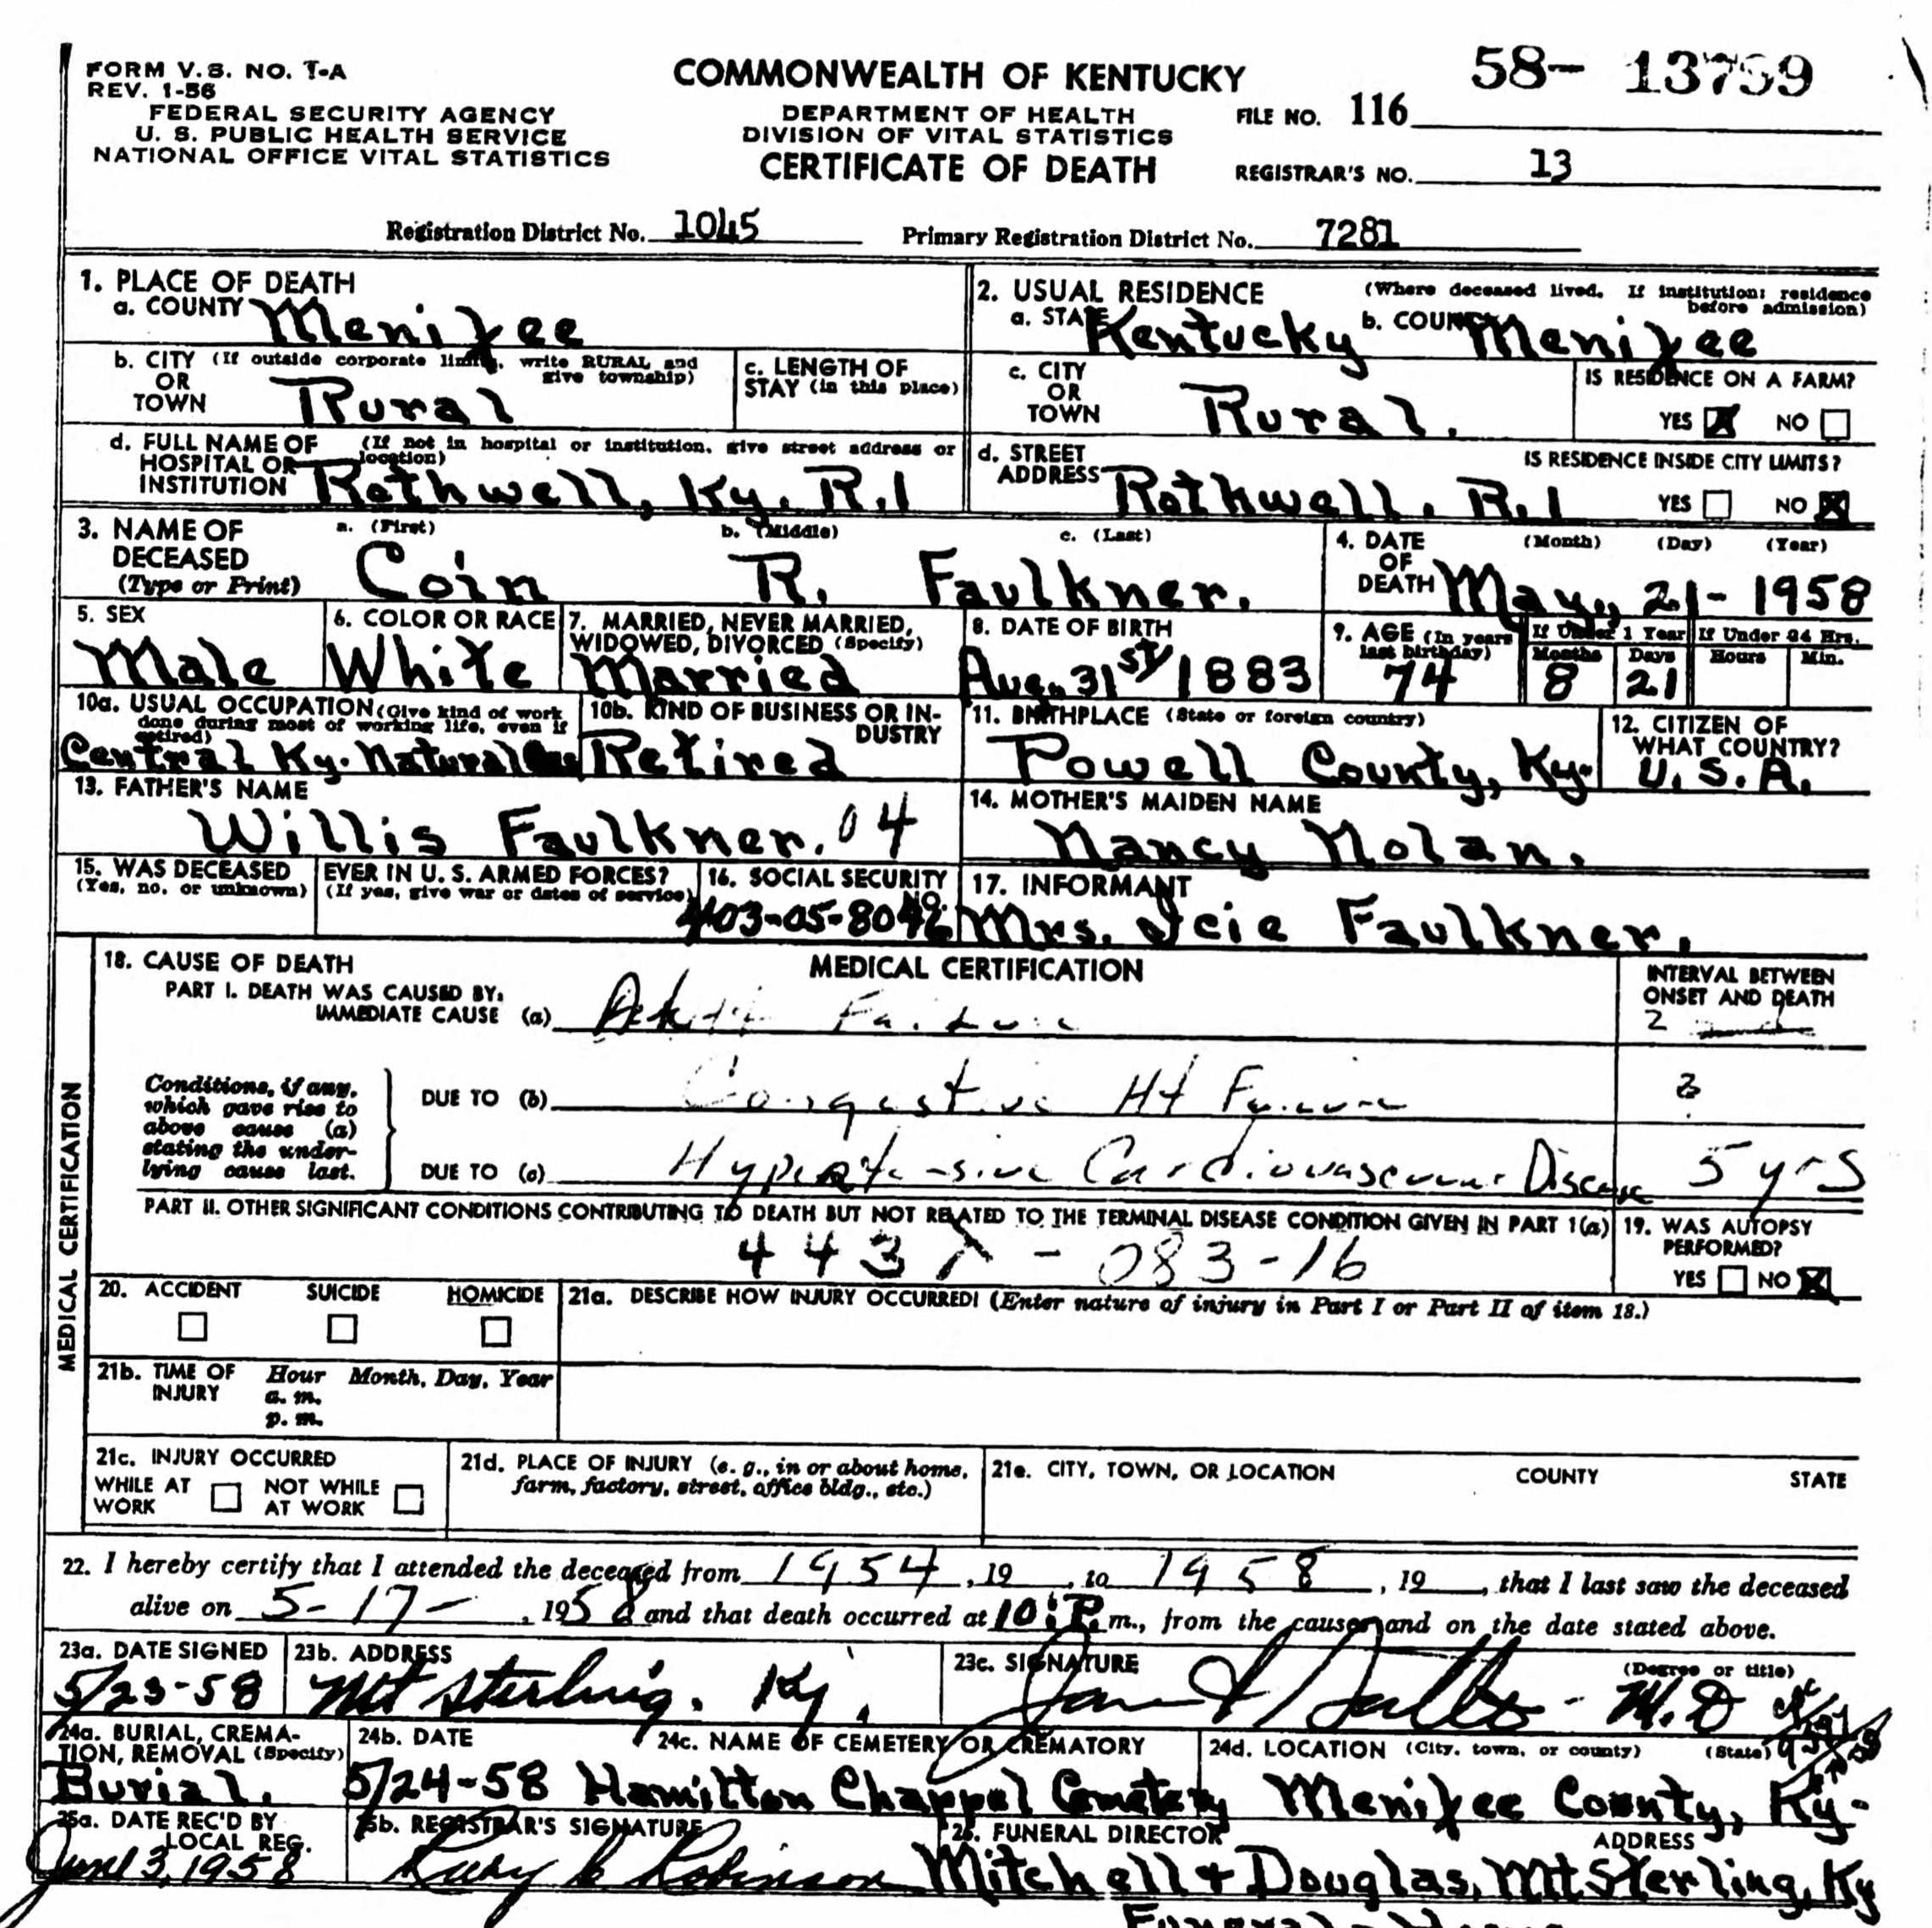 58- 13759
FORM V.S. NO. 1-A
REV. 1-56
FEDERAL SECURITY AGENCY
U. S. PUBLIC HEALTH SERVICE
NATIONAL OFFICE VITAL STATISTICS
COMMONWEALTH OF KENTUCKY
DEPARTMENT OF HEALTH
DIVISION OF VITAL STATISTICS
CERTIFICATE OF DEATH
FILE NO. 116
REGISTRAR'S NO. 13
Registration District No. 1045 Primary Registration District No. 7281
1. PLACE OF DEATH
a. COUNTY Menifee
2. USUAL RESIDENCE (Where deceased lived. If institution: residence before admission)
a. STATE Kentucky b. COUNTY Menifee
b. CITY (If outside corporate limits, write RURAL and give township)
OR TOWN Rural
c. LENGTH OF STAY (in this place)
c. CITY OR TOWN Rural.
IS RESIDENCE ON A FARM?
YES X NO
d. FULL NAME OF HOSPITAL OR INSTITUTION (If not in hospital or institution, give street address or location)
Rothwell, Ky. R.1
d. STREET ADDRESS Rothwell. R.1
IS RESIDENCE INSIDE CITY LIMITS?
YES NO X
3. NAME OF DECEASED (Type or Print)
a. (First) b. (Middle) c. (Last)
Coin R. Faulkner.
4. DATE OF DEATH (Month) (Day) (Year)
May, 21- 1958
5. SEX
Male
6. COLOR OR RACE
White
7. MARRIED, NEVER MARRIED, WIDOWED, DIVORCED (Specify)
Married
8. DATE OF BIRTH
Aug. 31st 1883
9. AGE (In years last birthday)
74
If Under 1 Year If Under 24 Hrs.
Months Days Hours Min.
8 21
10a. USUAL OCCUPATION (Give kind of work done during most of working life, even if retired)
Central Ky. Natural
10b. KIND OF BUSINESS OR INDUSTRY
Retired
11. BIRTHPLACE (State or foreign country)
Powell County, Ky.
12. CITIZEN OF WHAT COUNTRY?
U.S.A.
13. FATHER'S NAME
Willis Faulkner. 04
14. MOTHER'S MAIDEN NAME
Nancy Nolan.
15. WAS DECEASED EVER IN U. S. ARMED FORCES?
(Yes, no, or unknown) (If yes, give war or dates of service)
16. SOCIAL SECURITY NO.
403-05-8046
17. INFORMANT
Mrs. Icie Faulkner.
MEDICAL CERTIFICATION
18. CAUSE OF DEATH
MEDICAL CERTIFICATION
INTERVAL BETWEEN ONSET AND DEATH
PART I. DEATH WAS CAUSED BY:
IMMEDIATE CAUSE (a) 2
Conditions, if any, which gave rise to above cause (a) stating the underlying cause last.
DUE TO (b) Congestive Ht Failure
DUE TO (c) Hypertensive Cardiovascular Disease 5 yrs
PART II. OTHER SIGNIFICANT CONDITIONS CONTRIBUTING TO DEATH BUT NOT RELATED TO THE TERMINAL DISEASE CONDITION GIVEN IN PART 1(a)
443X - 083-16
19. WAS AUTOPSY PERFORMED?
YES NO X
20. ACCIDENT SUICIDE HOMICIDE
21a. DESCRIBE HOW INJURY OCCURRED! (Enter nature of injury in Part I or Part II of item 18.)
21b. TIME OF INJURY Hour Month, Day, Year
a. m.
p. m.
21c. INJURY OCCURRED
WHILE AT WORK NOT WHILE AT WORK
21d. PLACE OF INJURY (e. g., in or about home, farm, factory, street, office bldg., etc.)
21e. CITY, TOWN, OR LOCATION COUNTY STATE
22. I hereby certify that I attended the deceased from 1954, 19 , to 1958, 19 , that I last saw the deceased
alive on 5-17-, 1958 and that death occurred at 10:P.m., from the causes and on the date stated above.
23a. DATE SIGNED
5/23-58
23b. ADDRESS
Mt Sterling. Ky.
23c. SIGNATURE (Degree or title)
M.D
24a. BURIAL, CREMATION, REMOVAL (Specify)
Burial.
24b. DATE
5/24-58
24c. NAME OF CEMETERY OR CREMATORY
Hamilton Chappel Cemetery
24d. LOCATION (City, town, or county) (State)
Menifee County, Ky-
25a. DATE REC'D BY LOCAL REG.
June 3, 1958
25b. REGISTRAR'S SIGNATURE
Robinson
26. FUNERAL DIRECTOR ADDRESS
Mitchell & Douglas, Mt. Sterling, Ky